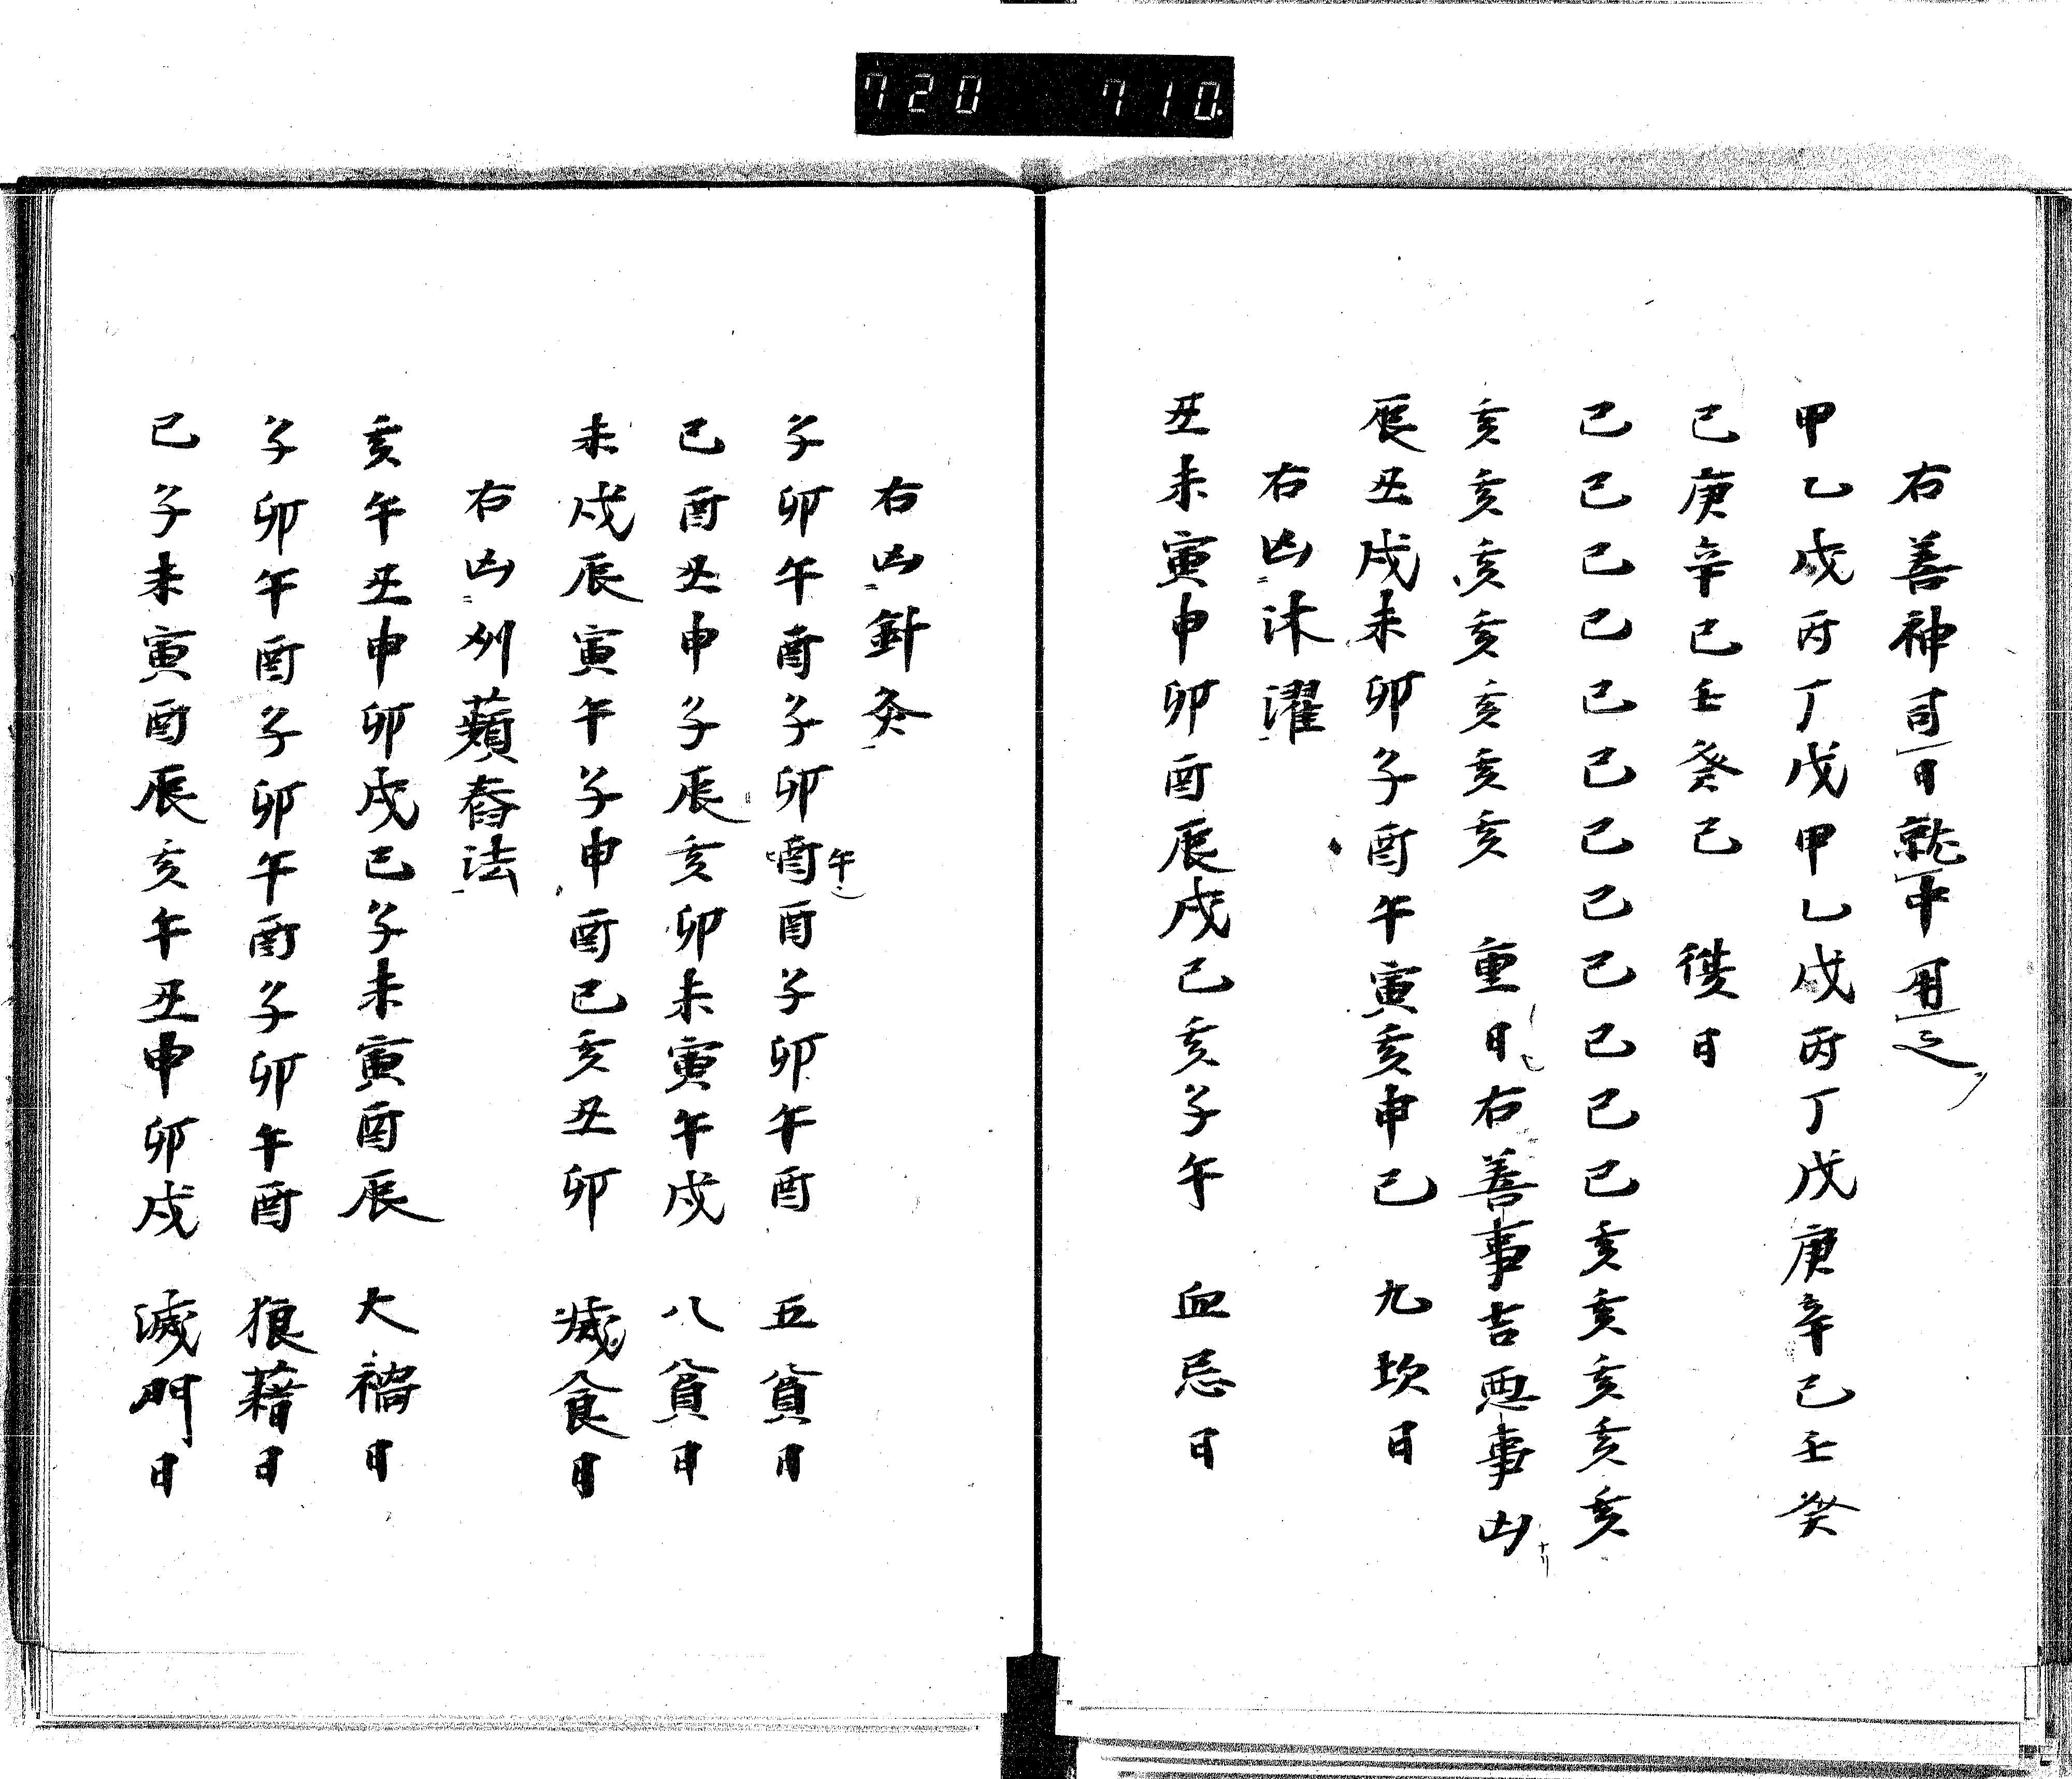 720 710.
右善神司日就中用之
甲乙戊丙丁戊甲乙戊丙丁戊庚辛己壬癸
己庚辛己壬癸己 復日
巳巳巳巳巳巳巳巳巳巳巳巳亥亥亥亥亥
亥亥亥亥亥亥亥 重日右善事吉悪事凶
辰丑戌未卯子酉午寅亥申巳 九坎日
右凶沐濯
丑未寅申卯酉辰戌巳亥子午 血忌日
右凶針灸
子卯午酉子卯酉酉子卯午酉 五貧日
午
巳酉丑申子辰亥卯未寅午戌 八貧日
未戌辰寅午子申酉巳亥丑卯 滅食日
右凶刈蘋舂法
亥午丑申卯戌巳子未寅酉辰 大禍日
子卯午酉子卯午酉子卯午酉 狼藉日
巳子未寅酉辰亥午丑申卯戌 滅門日